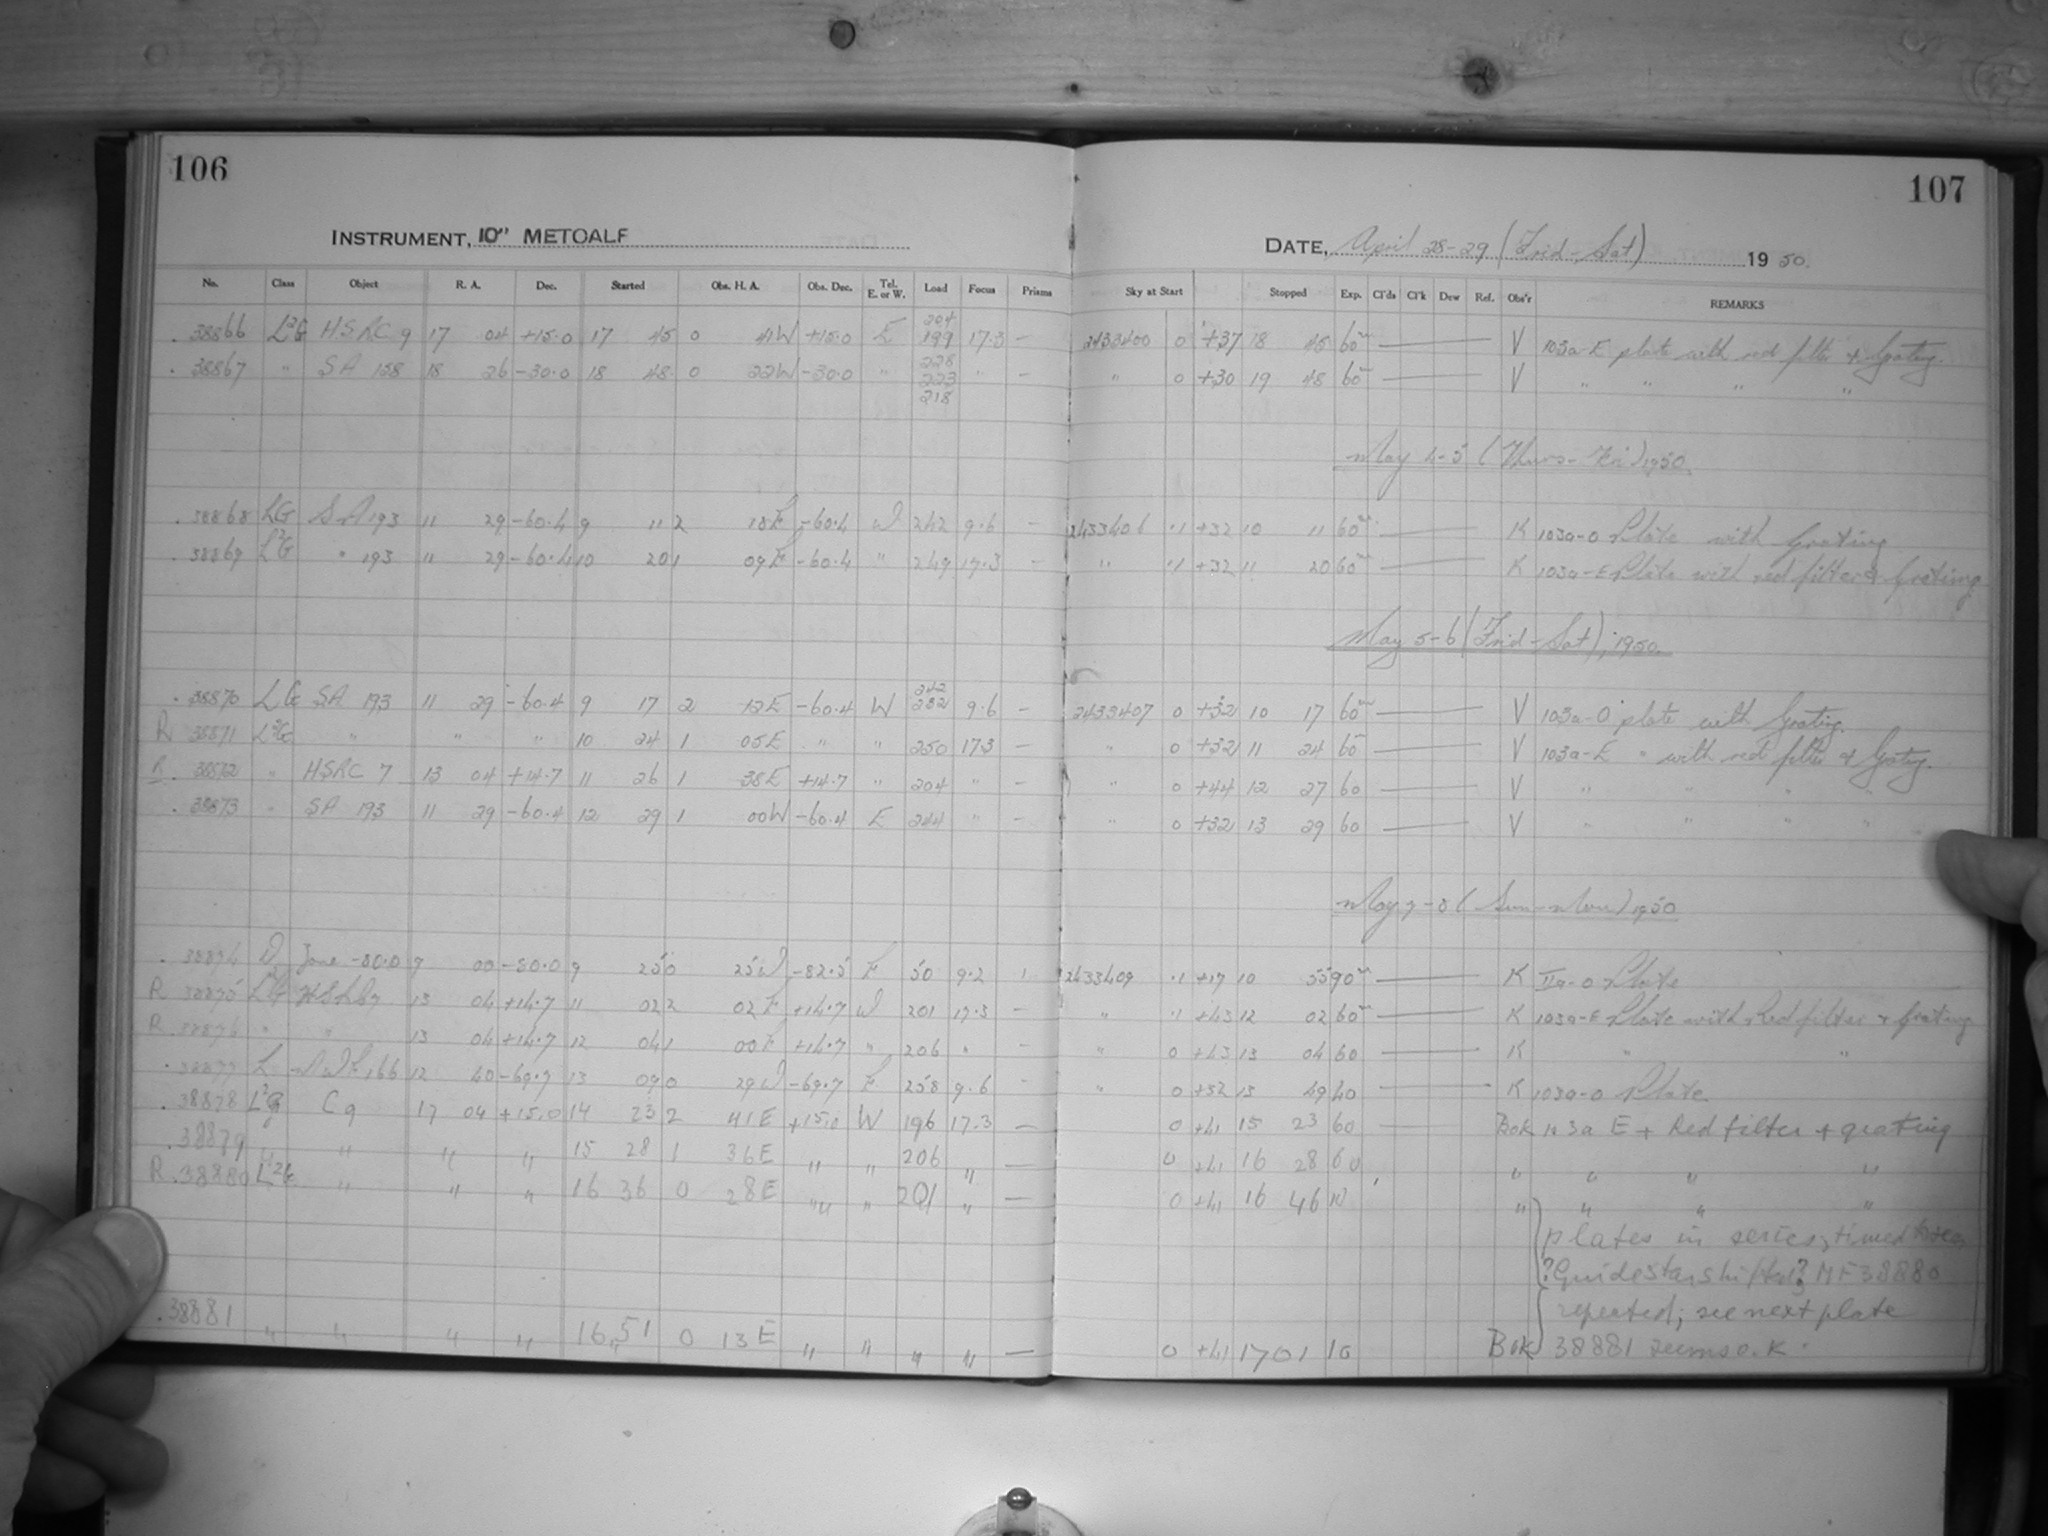 106
107
INSTRUMENT, 10" METCALF
DATE, April 28-29 (Frid-Sat) 1950.
No. Class Object R. A. Dec. Started Obs. H. A. Obs. Dec. Tel. E. or W. Load Focus Prisms Sky at Start Stopped Exp. Cl'ds Cl'k Dew Ref. Obs'r REMARKS
38866 L2G HSRC 9 17 04 +15.0 17 45 0 41W +15.0 E 204 199 17.3 - 2433400 0 +37 18 45 60m V 103a-E plate with red filter & Grating.
38867 " SA 158 18 26 -30.0 18 48 0 22W -30.0 " 228 223 218 " - " 0 +30 19 48 60m V " " " "
May 4-5 (Thurs-Fri) 1950.
38868 LG SA 193 11 29 -60.4 9 11 2 18E -60.4 W 242 9.6 - 2433406 .1 +32 10 11 60m K 103a-O Plate with Grating
38869 L2G " 193 11 29 -60.4 10 20 1 09E -60.4 " 249 17.3 - " .1 +32 11 20 60m K 103a-E Plate with red filter & Grating
May 5-6 (Frid-Sat), 1950.
38870 LG SA 193 11 29 -60.4 9 17 2 12E -60.4 W 242 9.6 - 2433407 0 +32 10 17 60m V 103a-O plate with Grating.
R 38871 L2G " " " 10 24 1 05E " " 250 17.3 - " 0 +32 11 24 60 V 103a-E " with red filter & Grating.
R 38872 " HSRC 7 13 04 +14.7 11 26 1 38E +14.7 " 204 " - " 0 +44 12 27 60 V " " " "
38873 " SA 193 11 29 -60.4 12 29 1 00W -60.4 E 244 " - " 0 +32 13 29 60 V " " " "
May 7-8 (Sun-Mon) 1950
38874 Zone -80.0 9 00 -80.0 9 25 0 25W -82.5 E 50 9.2 1 2433409 .1 +17 10 55 90m K IIa-O Plate
R 38875 L2G 13 04 +14.7 11 02 2 02E +14.7 W 201 17.3 - " .1 +43 12 02 60m K 103a-E Plate with Red filter & Grating
R 38876 " " 13 04 +14.7 12 04 1 00E +14.7 " 206 " - " 0 +43 13 04 60 K " "
38877 L 166 12 40 -69.7 13 09 0 29W -69.7 E 258 9.6 - " 0 +32 13 49 40 K 103a-O Plate.
38878 L2G C9 17 04 +15.0 14 23 2 41E +15.0 W 196 17.3 - 0 +41 15 23 60 Bok 103a E + Red filter + grating
38879 " " " " 15 28 1 36E " " 206 " - 0 +41 16 28 60 " " " "
R 38880 L2G " " " 16 36 0 28E " " 201 " - 0 +41 16 46 10 " " " "
plates in series, timed
? Guidestar shifted? MF38880
repeated; see next plate
38881 " " " " 16 51 0 13E " " " " - 0 +41 17 01 10 Bok 38881 seems o.K.